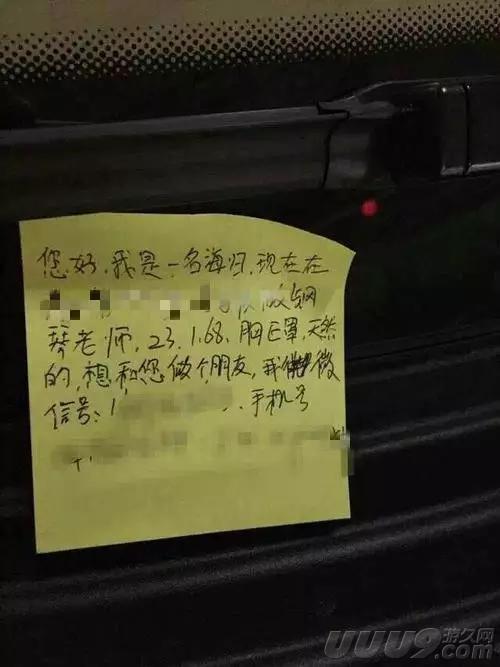 您好,我是一名海归,现在在
做钢
琴老师,23,1.68,胸E罩,天然
的,想和您做个朋友,我微
信号:1 手机号
UUU9.com 游久网